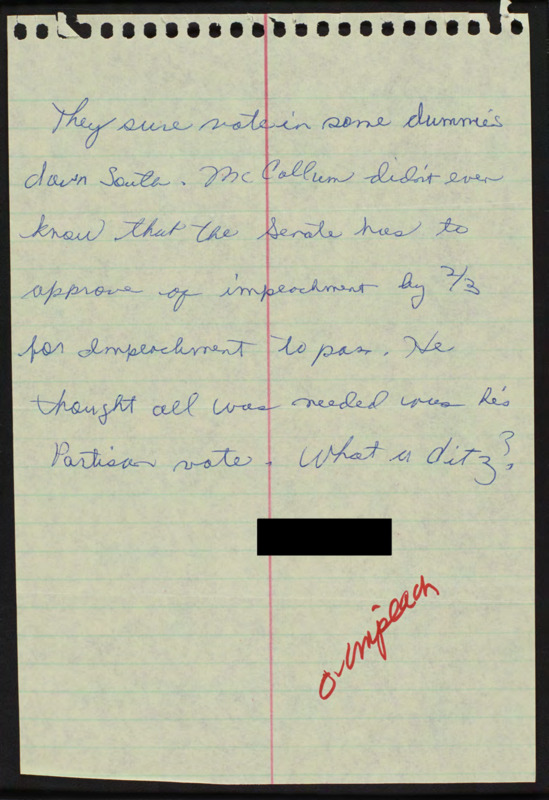 They sure vote in some dummies
down South. McCollum didn't even
know that the Senate has to
approve of impeachment by 2/3
for Impeachment to pass. He
thought all was needed was his
Partisan vote. What a ditz?
impeach